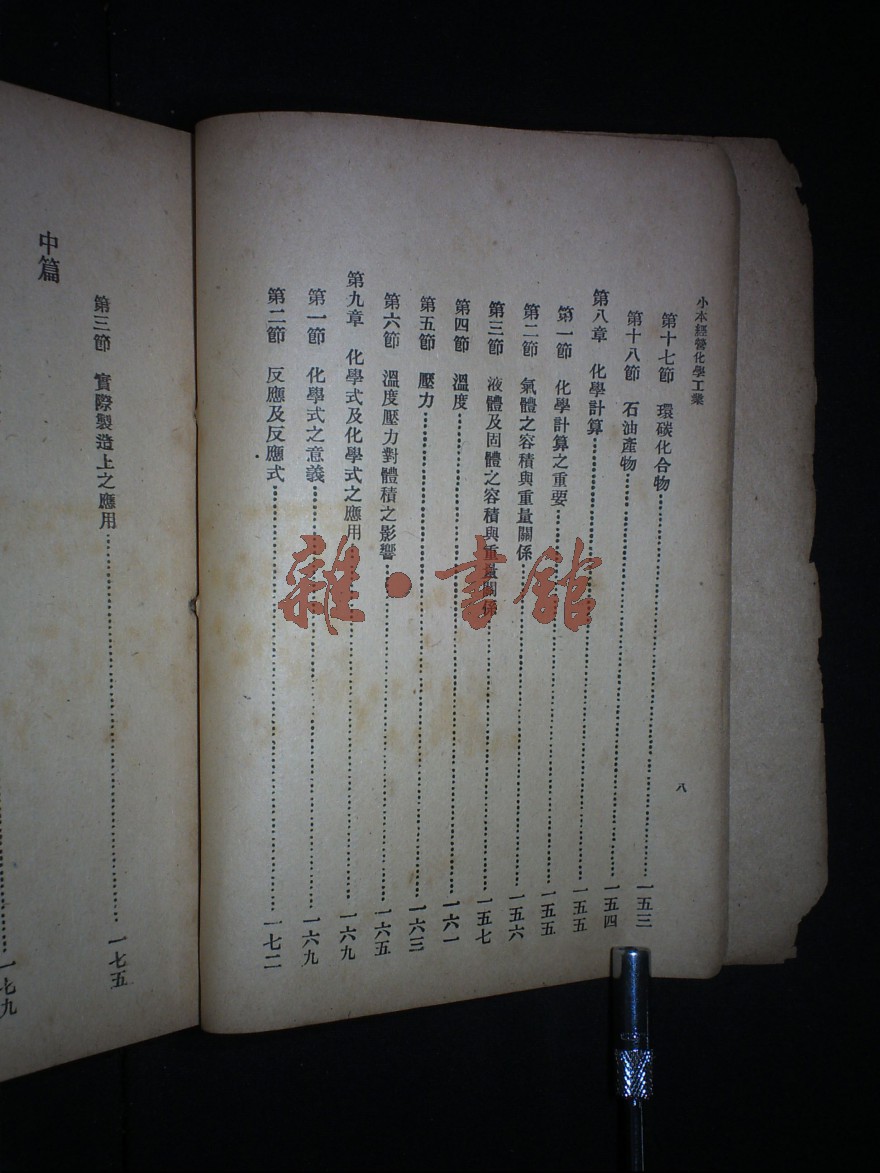 小本經營化學工業
八
第十七節 環碳化合物 一五三
第十八節 石油產物 一五四
第八章 化學計算 一五五
第一節 化學計算之重要 一五五
第二節 氣體之容積與重量關係 一五六
第三節 液體及固體之容積與重量關係 一五七
第四節 溫度 一六一
第五節 壓力 一六三
第六節 溫度壓力對體積之影響 一六五
第九章 化學式及化學式之應用 一六九
第一節 化學式之意義 一六九
第二節 反應及反應式 一七二
第三節 實際製造上之應用 一七五
中篇
一七九
雜·書館